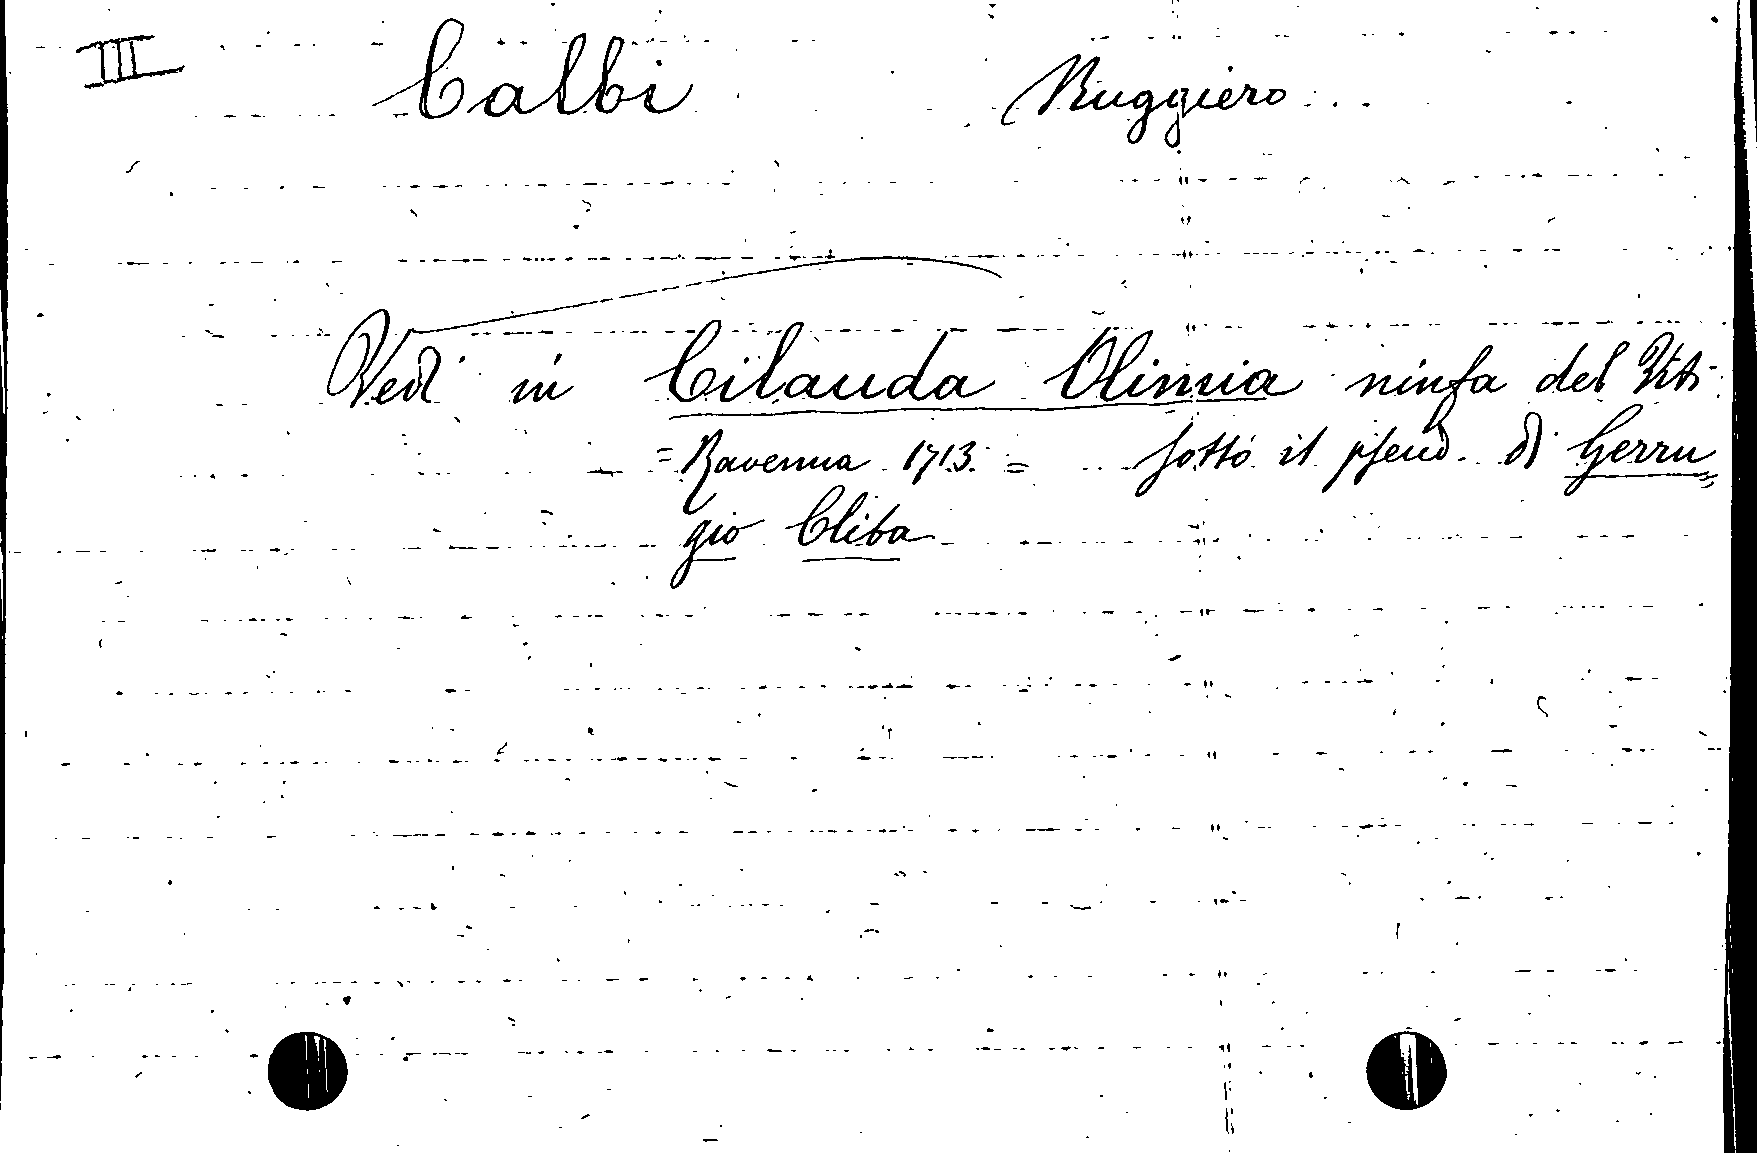 III Calbi Ruggiero
Vedi in Cilauda Olimia ninfa del Viti
= Ravenna 1713. = sotto il pseud. di Gerru=
gio Cliba